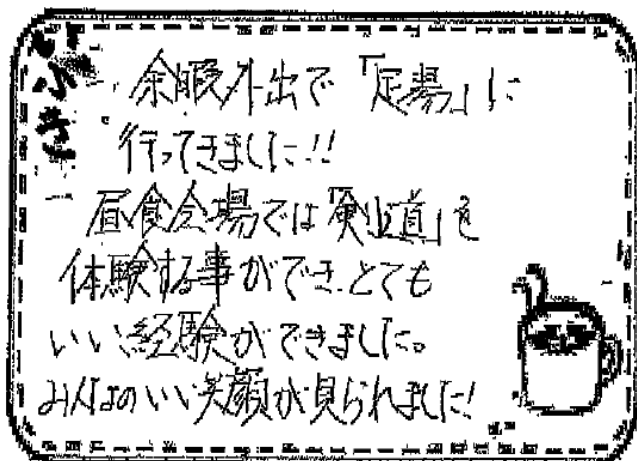 いぶき
余暇外出で「足湯」に
行ってきました!!
昼食会場では「道」を
体験する事ができ、とても
いい経験ができました。
みんなのいい笑顔が見られました!